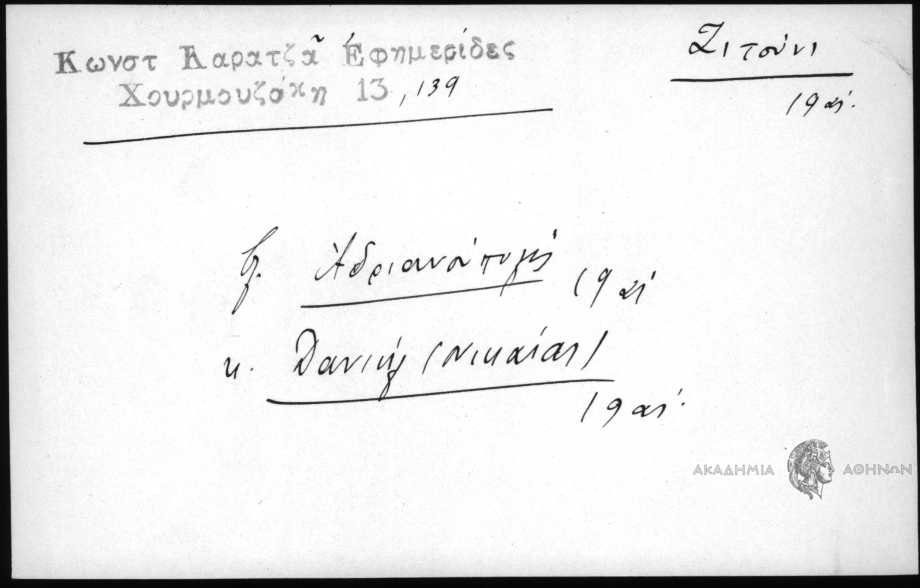 Κωνστ Καρατζᾶ Ἐφημερίδες
Χουρμουζάκη 13, 139
Ζιτούνι
19 αι.
βλ. Ἀδριανούπολις
19 αι
κ. Δανιήλ (Νικαίας)
19 αι.
ΑΚΑΔΗΜΙΑ ΑΘΗΝΩΝ